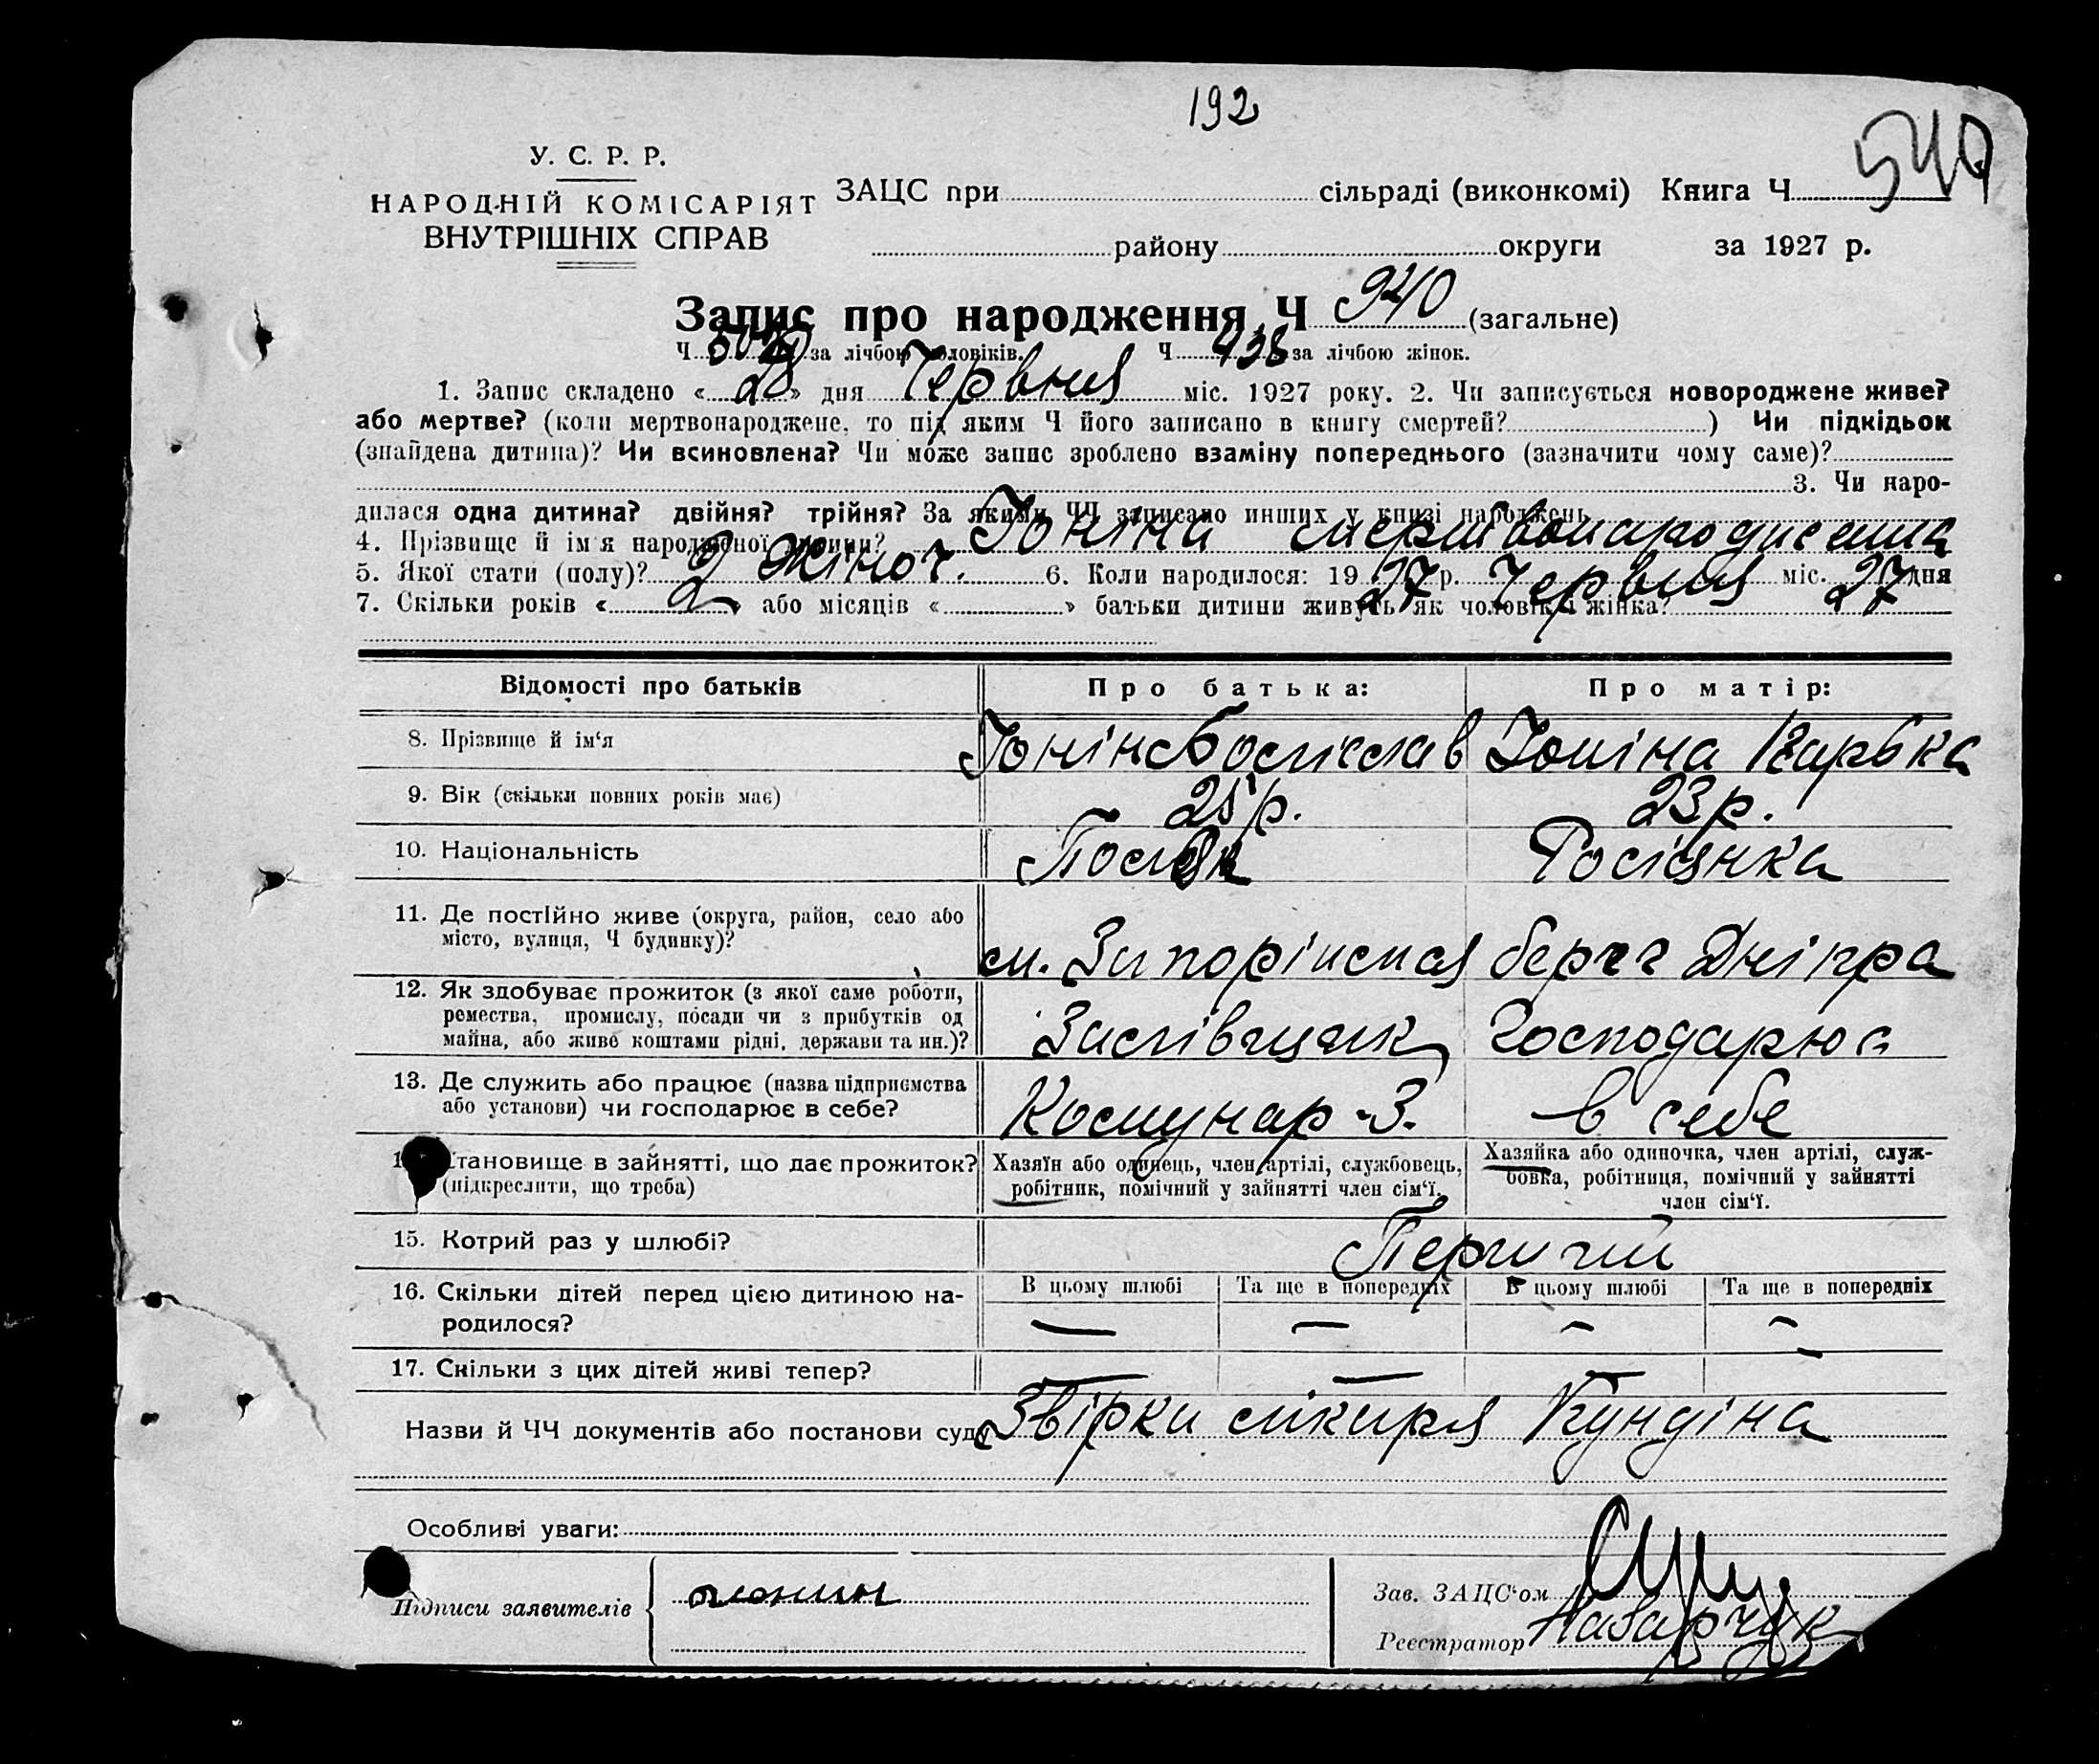 192
540
У. С. Р. Р.
НАРОДНІЙ КОМІСАРІЯТ
ВНУТРІШНІХ СПРАВ
ЗАЦС при сільраді (виконкомі) Книга Ч
району округи за 1927 р.
Запис про народження Ч 940 (загальне)
Ч за лічбою чоловіків. Ч 438 за лічбою жінок.
1. Запис складено « 28 » дня Червня міс. 1927 року. 2. Чи записується новороджене живе?
або мертве? (коли мертвонароджене, то під яким Ч його записано в книгу смертей? ) Чи підкідьок
(знайдена дитина)? Чи всиновлена? Чи може запис зроблено взаміну попереднього (зазначити чому саме)?
3. Чи наро-
дилася одна дитина? двійня? трійня? За якими ЧЧ записано инших у книзі народжень
4. Прізвище й ім'я народженої дитини? Юніна мертвонароджена
5. Якої стати (полу)? 2 Жіноч. 6. Коли народилося: 19 27 р. Червня міс. 27 дня
7. Скільки років « 2 » або місяців « » батьки дитини живуть як чоловік і жінка?
Відомості про батьків Про батька: Про матір:
8. Прізвище й ім'я Юнін Болеслав Юніна
9. Вік (скільки повних років має) 25 р. 23 р.
10. Національність Поляк Росіянка
11. Де постійно живе (округа, район, село або
місто, вулиця, Ч будинку)? м. Запоріжжя берег Дніпра
12. Як здобуває прожиток (з якої саме роботи,
ремества, промислу, посади чи з прибутків од
майна, або живе коштами рідні, держави та ин.)? Господарює
13. Де служить або працює (назва підприємства
або установи) чи господарює в себе? Комунар-З. в себе
становище в зайнятті, що дає прожиток?
(підкреслити, що треба)
Хазяїн або одинець, член артілі, службовець,
робітник, помічний у зайнятті член сім'ї.
Хазяйка або одиночка, член артілі, служ-
бовка, робітниця, помічний у зайнятті
член сім'ї.
15. Котрий раз у шлюбі? Перший
16. Скільки дітей перед цією дитиною на-
родилося?
В цьому шлюбі Та ще в попередніх В цьому шлюбі Та ще в попередніх
— — — —
17. Скільки з цих дітей живі тепер? — — — —
Назви й ЧЧ документів або постанови суду лікаря Кундіна
Особливі уваги:
Підписи заявителів
Зав. ЗАЦС'ом
Реєстратор Назарчук